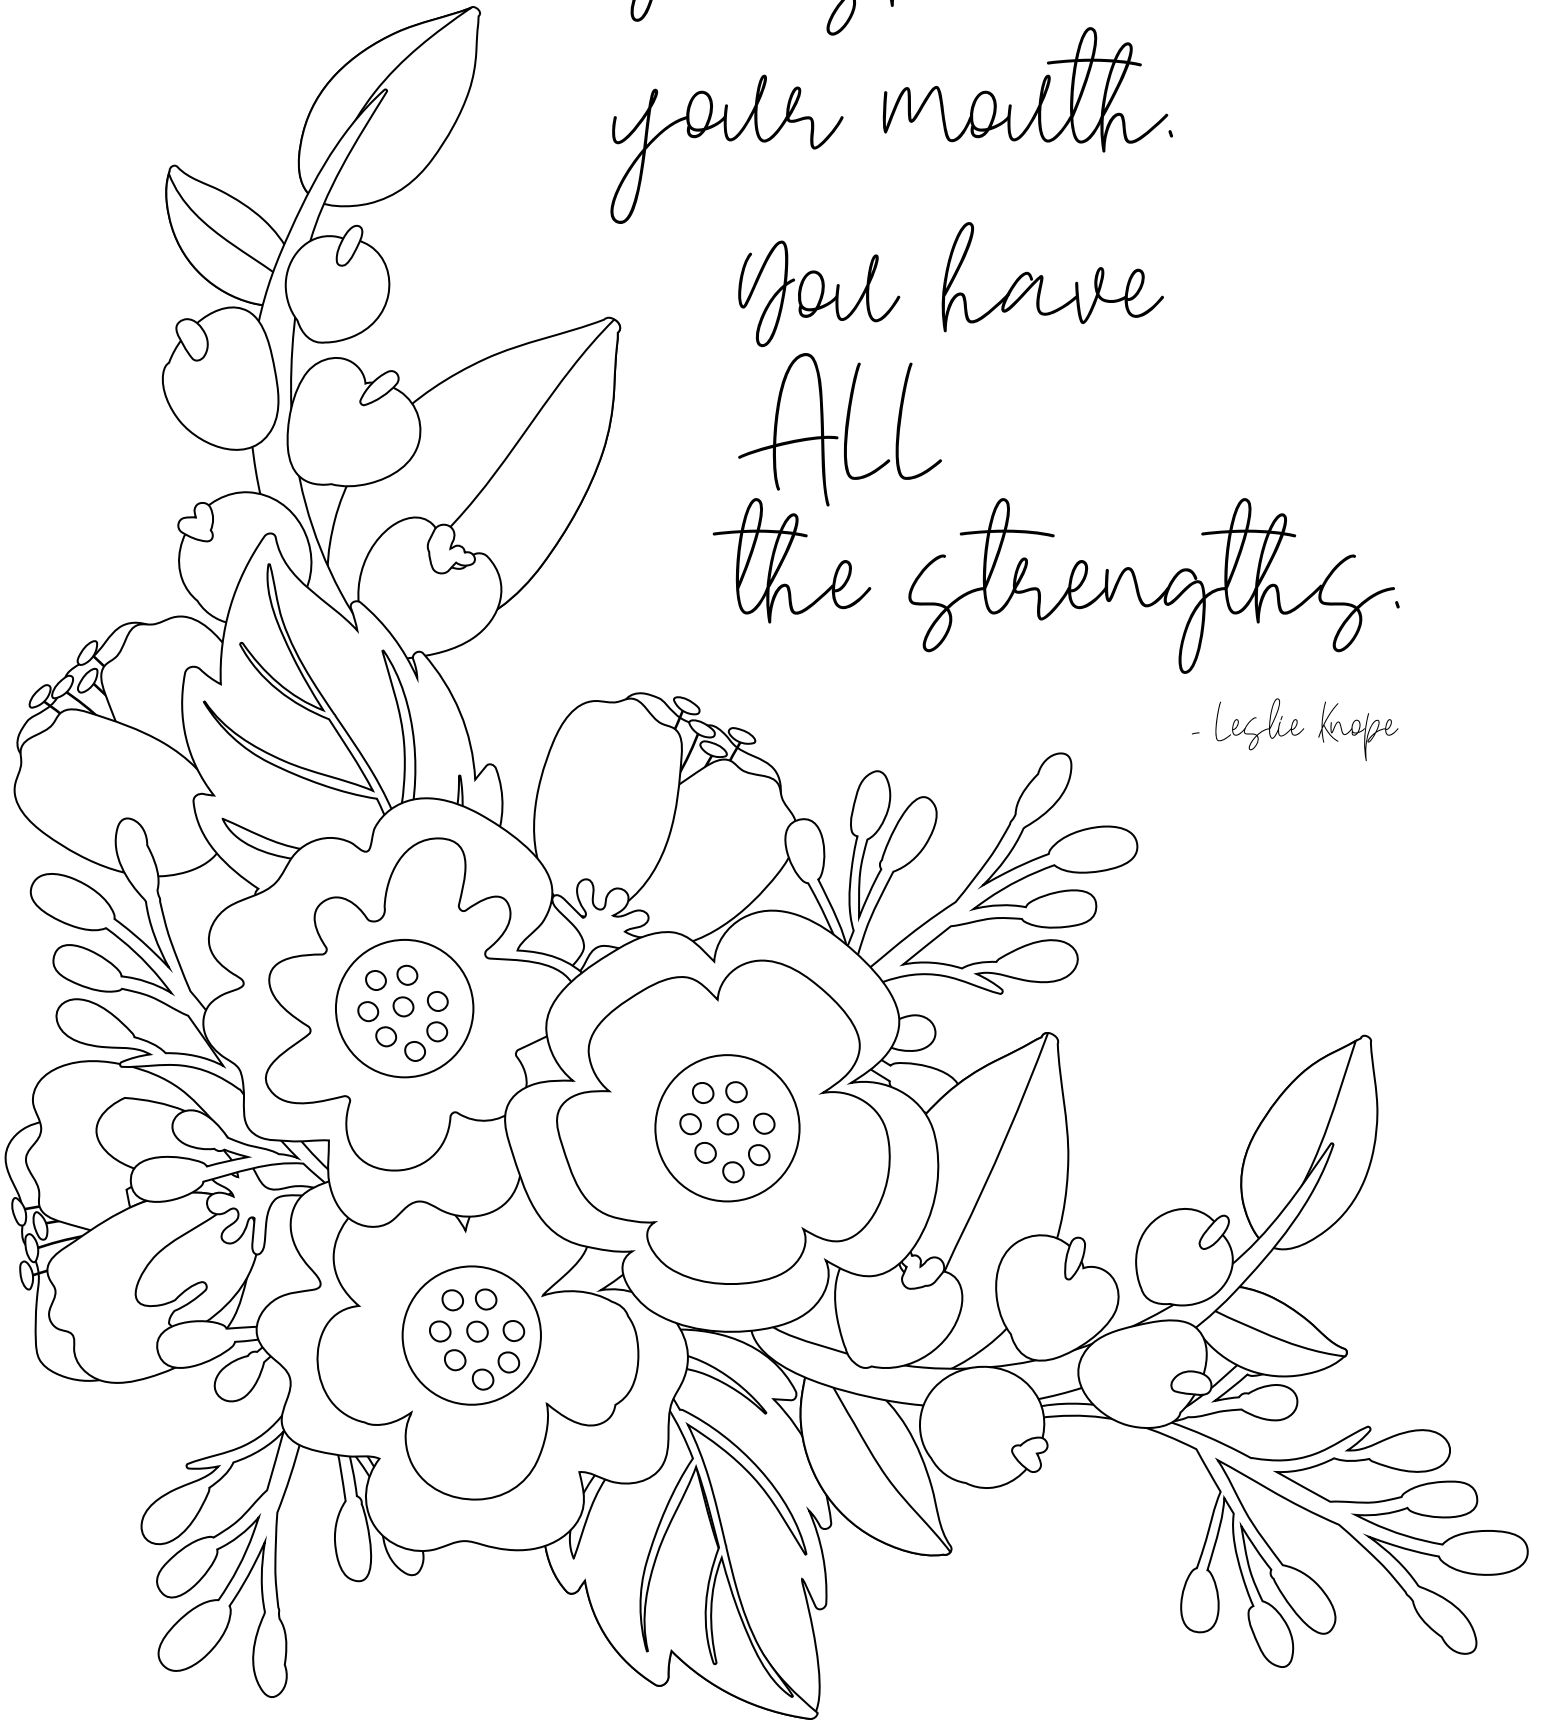 your mouth.
you have
ALL
the strengths.
- Leslie Knope